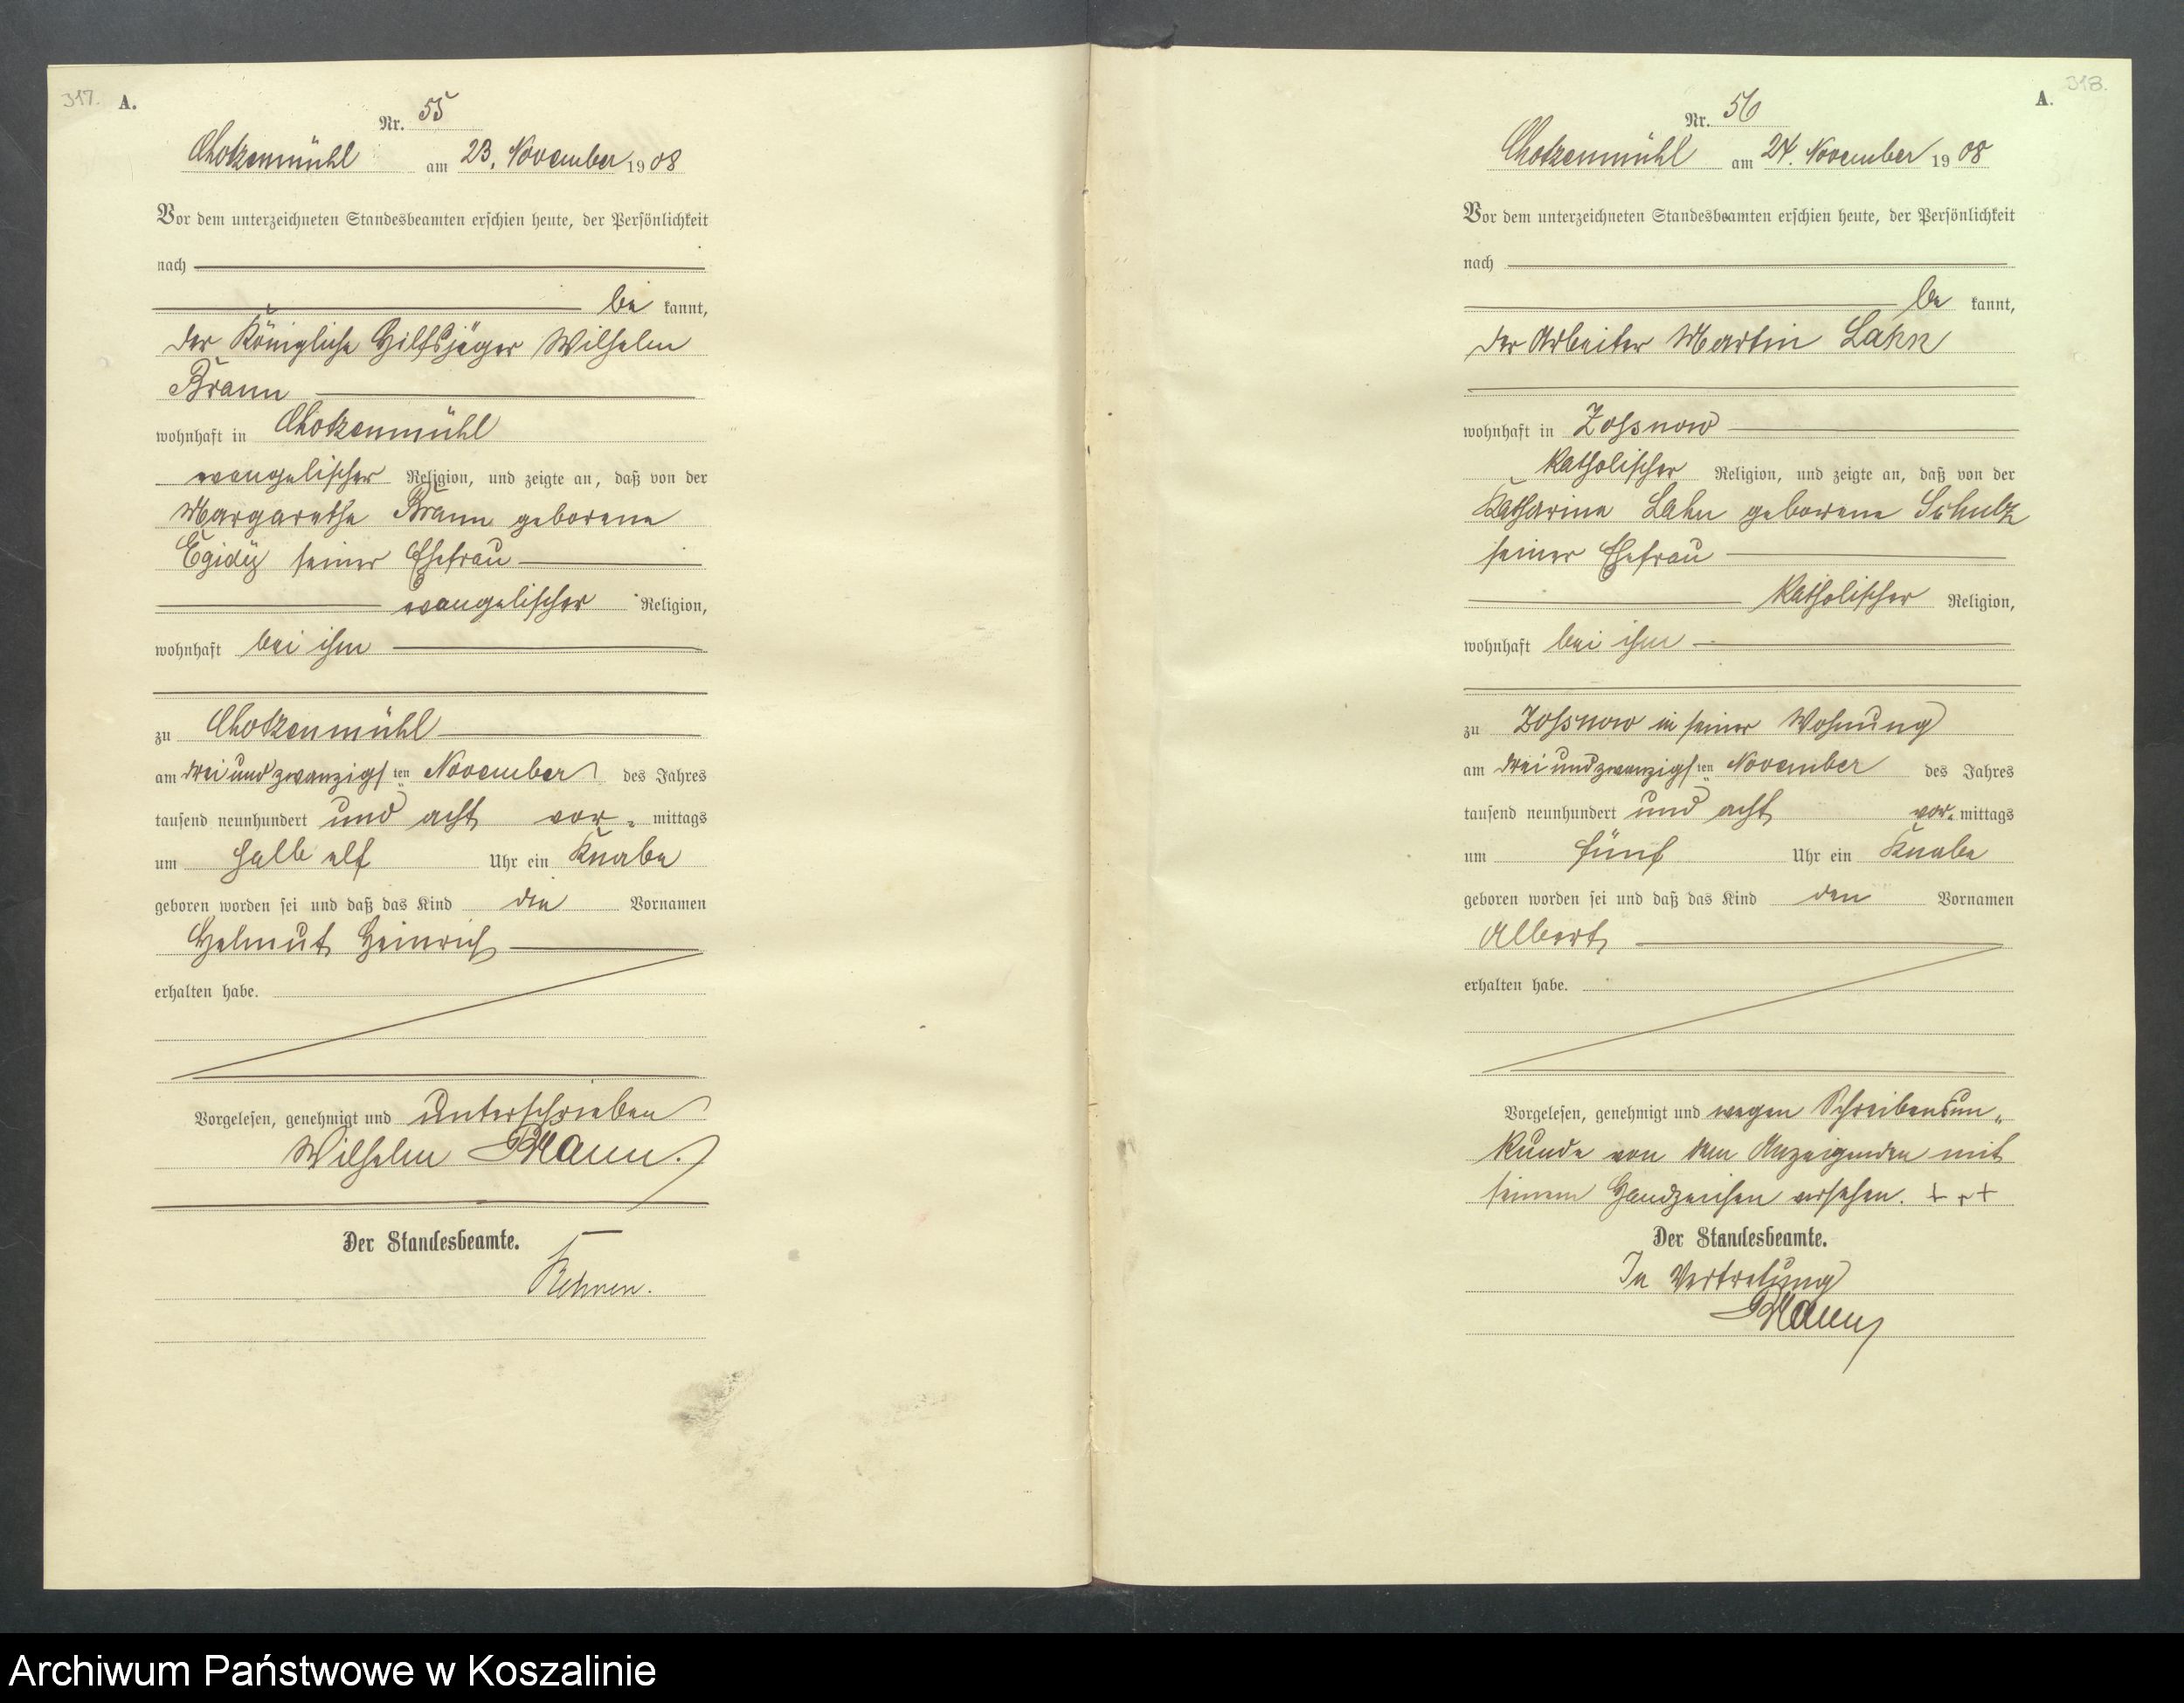 317. A.
Nr. 55
Chotzenmühl am 23. November 1908
Vor dem unterzeichneten Standesbeamten erschien heute, der Persönlichkeit
nach
be kannt,
der Königliche Hilfsjäger Wilhelm
Braun
wohnhaft in Chotzenmühl
evangelischer Religion, und zeigte an, daß von der
Margarethe Braun geborene
Egidÿ seiner Ehefrau
evangelischer Religion,
wohnhaft bei ihm
zu Chotzenmühl
am dreiundzwanzigsten November des Jahres
tausend neunhundert und acht vor- mittags
um halb elf Uhr ein Knabe
geboren worden sei und daß das Kind die Vornamen
Helmut Heinrich
erhalten habe.
Vorgelesen, genehmigt und unterschrieben
Wilhelm Braun.
Der Standesbeamte.
A. 318.
Nr. 56
Chotzenmühl am 24. November 1908
Vor dem unterzeichneten Standesbeamten erschien heute, der Persönlichkeit
nach
be kannt,
der Arbeiter Martin Lahn
wohnhaft in Zossnow
katholischer Religion, und zeigte an, daß von der
Katharina Lahn geborene Schulz
seiner Ehefrau
katholischer Religion,
wohnhaft bei ihm
zu Zossnow in seiner Wohnung
am dreiundzwanzigsten November des Jahres
tausend neunhundert und acht vor- mittags
um fünf Uhr ein Knabe
geboren worden sei und daß das Kind den Vornamen
Albert
erhalten habe.
Vorgelesen, genehmigt und wegen Schreibensun-
kunde von dem Anzeigenden mit
seinem Handzeichen versehen. + + +
Der Standesbeamte.
In Vertretung
Braun
Archiwum Państwowe w Koszalinie